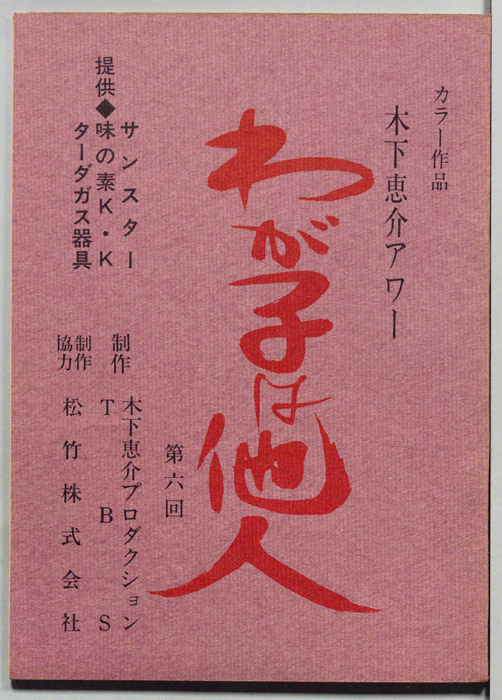 カラー作品
木下恵介アワー
わが子は他人
第六回
提供◆
サンスター
味の素K・K
ターダガス器具
制作
木下恵介プロダクション
TBS
制作協力
松竹株式会社